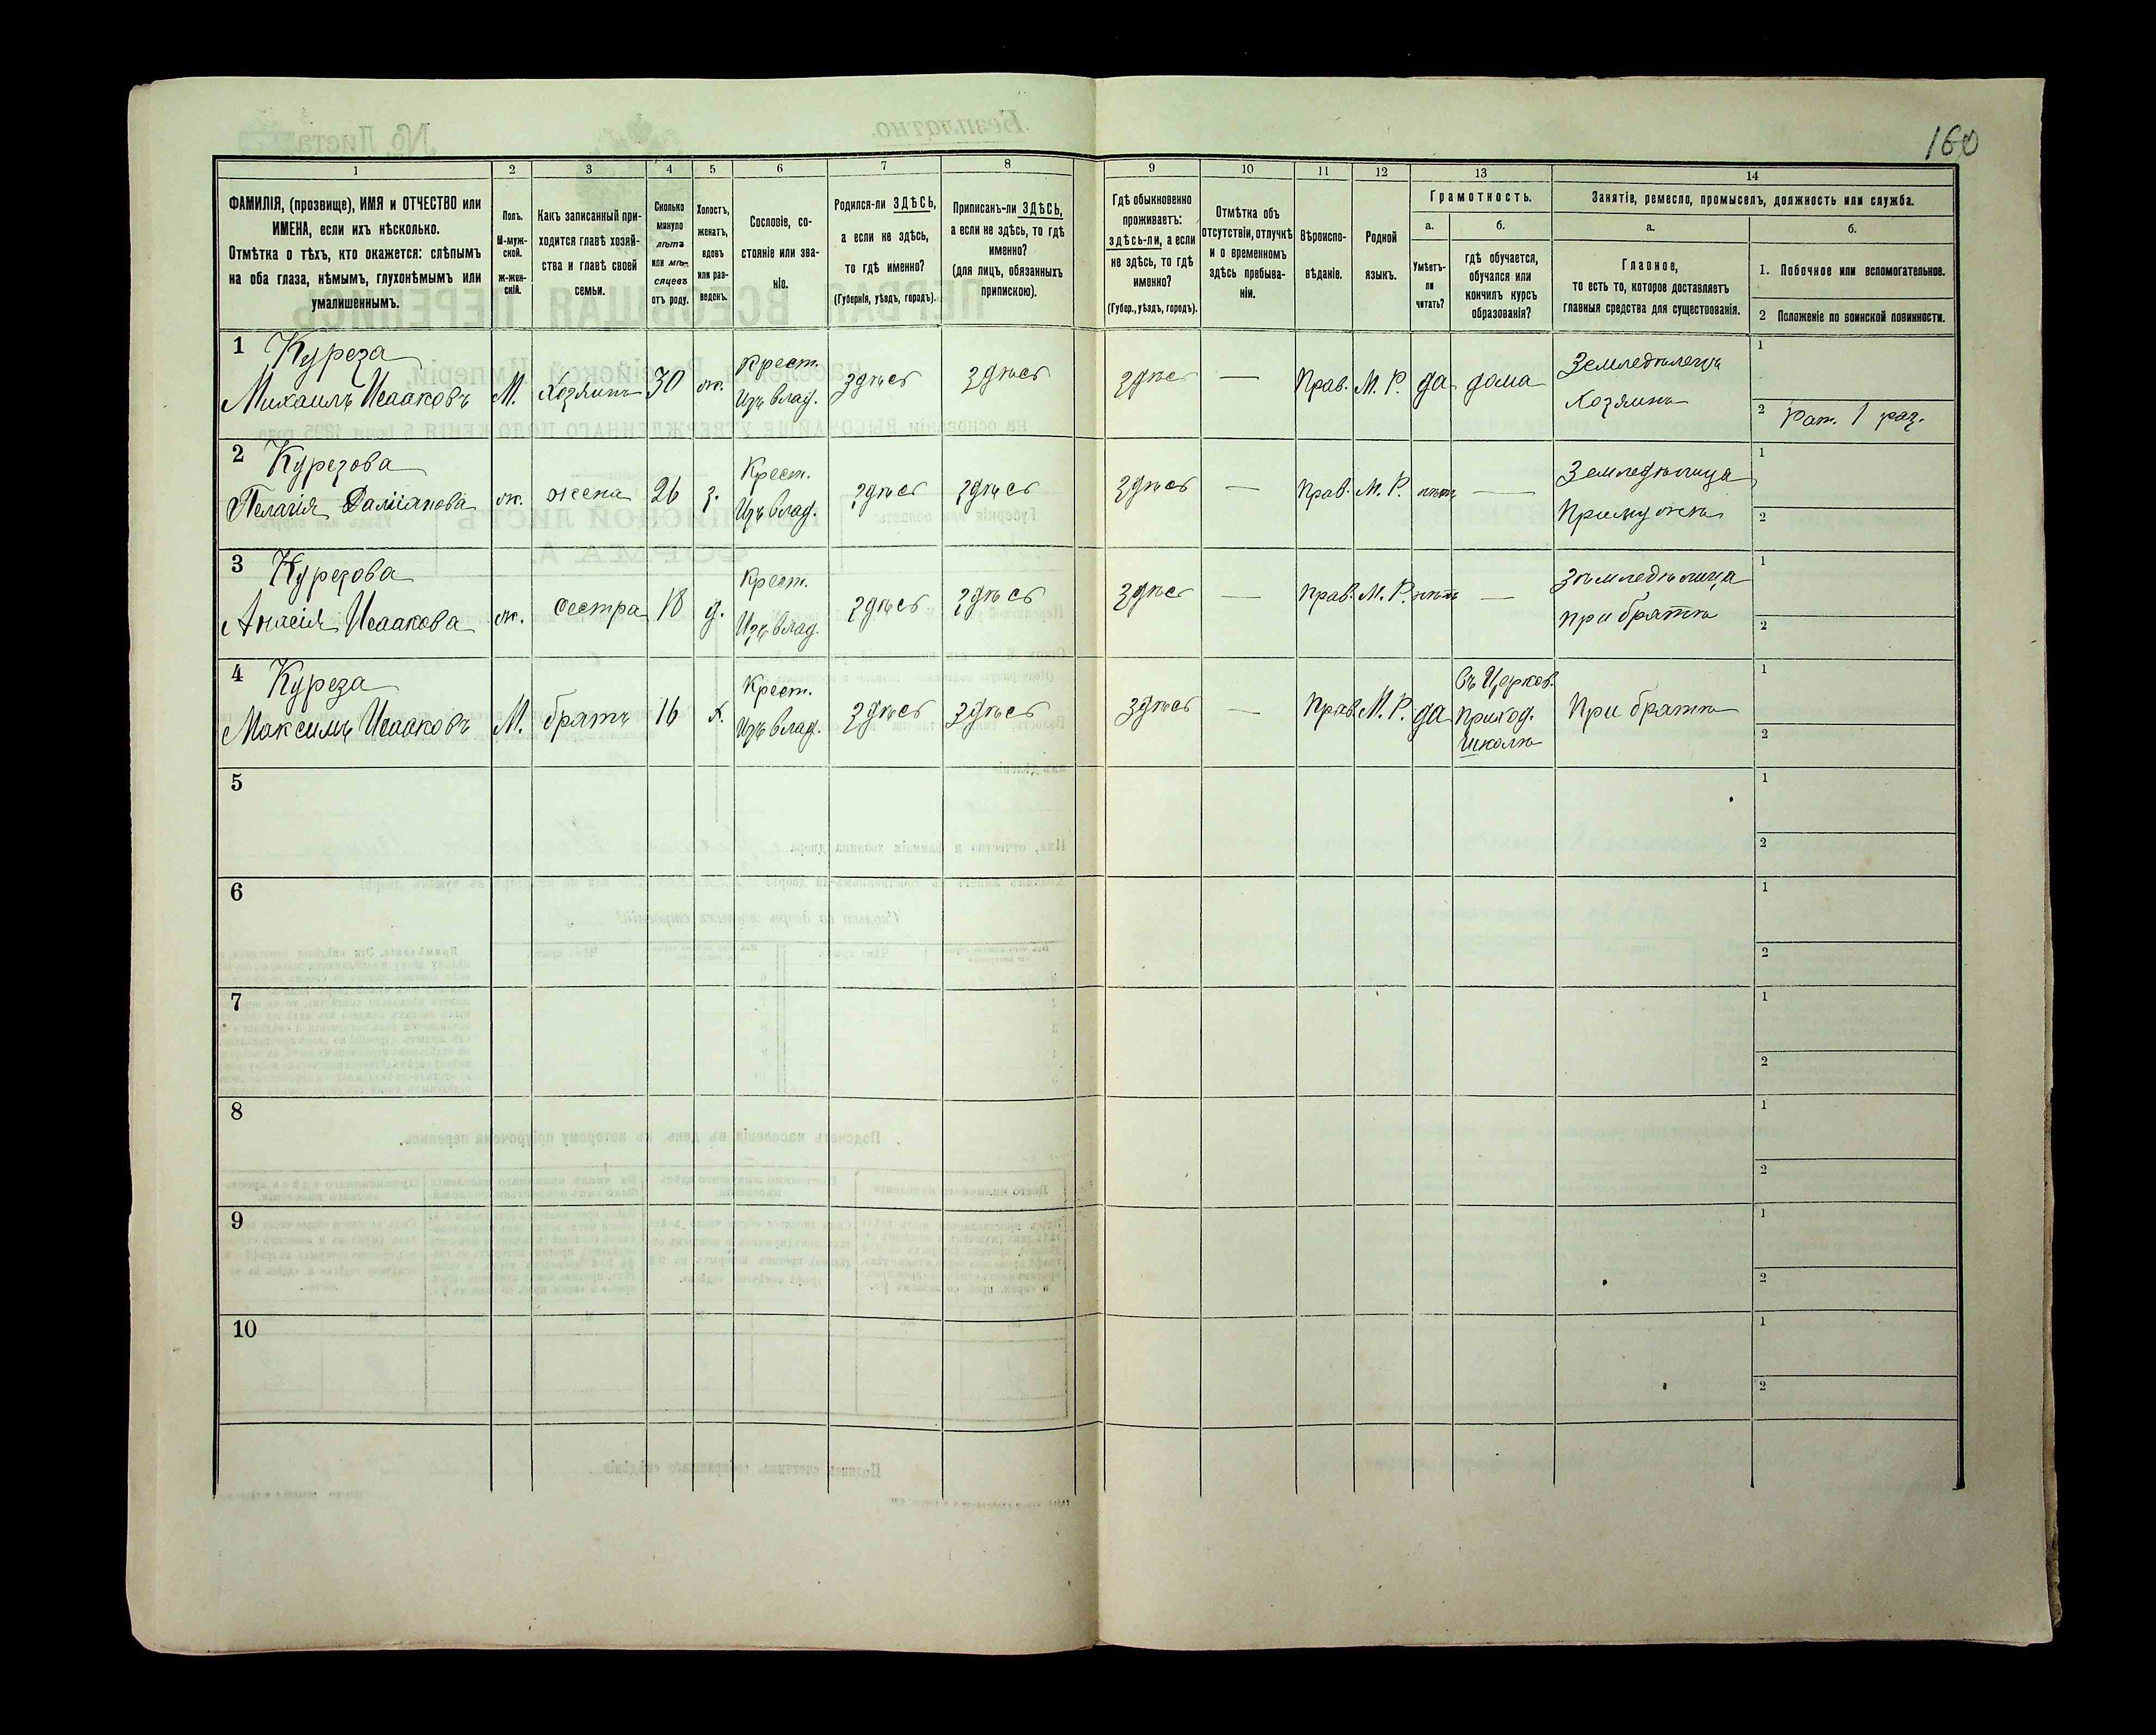 160
1
2
3
4
5
6
7
8
9
10
11
12
13
14
ФАМИЛІЯ, (прозвище), ИМЯ и ОТЧЕСТВО или
ИМЕНА, если ихъ нѣсколько.
Отмѣтка о тѣхъ, кто окажется: слѣпымъ
на оба глаза, нѣмымъ, глухонѣмымъ или
умалишеннымъ.
Полъ.
М-муж-
ской.
Ж-жен-
скій.
Какъ записанный при-
ходится главѣ хозяй-
ства и главѣ своей
семьи.
Сколько
минуло
лѣтъ
или мѣ-
сяцевъ
отъ роду.
Холостъ,
женатъ,
вдовъ
или раз-
веденъ.
Сословіе, со-
стояніе или зва-
ніе.
Родился-ли ЗДѢСЬ,
а если не здѣсь,
то гдѣ именно?
(Губернія, уѣздъ, городъ).
Приписанъ-ли ЗДѢСЬ,
а если не здѣсь, то гдѣ
именно?
(для лицъ, обязанныхъ
припискою).
Гдѣ обыкновенно
проживаетъ:
здѣсь-ли, а если
не здѣсь, то гдѣ
именно?
(Губер., уѣздъ, городъ).
Отмѣтка объ
отсутствіи, отлучкѣ
и о временномъ
здѣсь пребыва-
ніи.
Вѣроиспо-
вѣданіе.
Родной
языкъ.
Грамотность.
а.
Умѣетъ-
ли
читать?
б.
гдѣ обучается,
обучался или
кончилъ курсъ
образованія?
Занятіе, ремесло, промыселъ, должность или служба.
а.
Главное,
то есть то, которое доставляетъ
главныя средства для существованія.
б.
1. Побочное или вспомогательное.
2 Положеніе по воинской повинности.
1 Куреза
Михаилъ Исааковъ
М.
Хозяинъ
30
ж.
Крест.
Изъ влад.
здѣсь
здѣсь
здѣсь
—
Прав.
М. Р.
да
дома
Земледѣлецъ
Хозяинъ
1
2 Рат. 1 раз.
2 Курезова
Пелагія Даміанова
ж.
жена
26
з.
Крест.
Изъ влад.
здѣсь
здѣсь
здѣсь
—
Прав.
М. Р.
нѣтъ
—
Земледѣлица
При мужѣ
1
2
3 Курезова
Анасія Исаакова
ж.
сестра
18
д.
Крест.
Изъ влад.
здѣсь
здѣсь
здѣсь
—
Прав.
М. Р.
нѣтъ
—
Земледѣлица
при братѣ
1
2
4 Куреза
Максимъ Исааковъ
М.
братъ
16
х.
Крест.
Изъ влад.
здѣсь
здѣсь
здѣсь
—
Прав.
М. Р.
да
Въ Церков.
приход.
школѣ
При братѣ
1
2
5
1
2
6
1
2
7
1
2
8
1
2
9
1
2
10
1
2